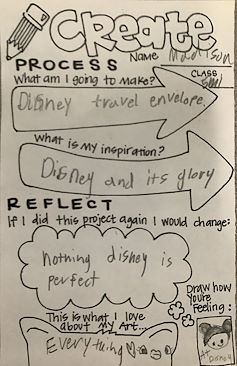 Create
Name Madison
PROCESS
What am I going to make?
CLASS
Disney travel envelope.
What is my inspiration?
Disney and its glory
REFLECT
If I did this project again I would change:
nothing disney is
perfect
Draw how
You're
Feeling:
This is what I love
about my Art...
Everything
#Disney